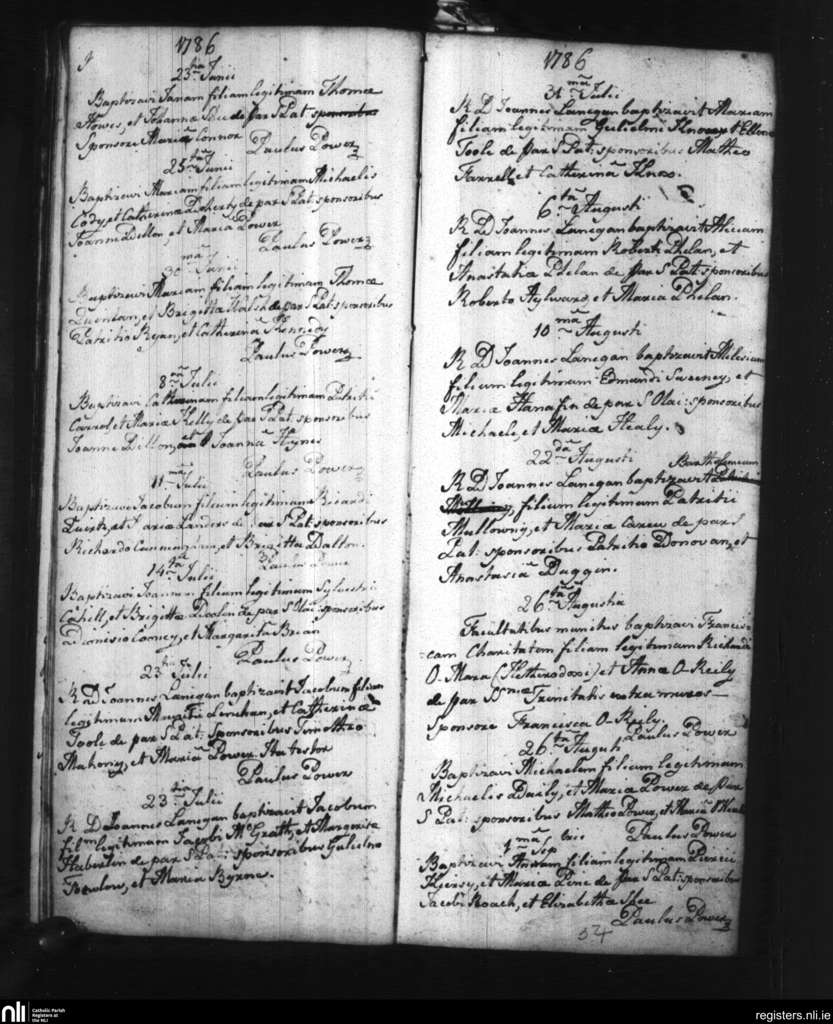 1786
23tia Junii
Baptizavi Janam filiam legitimam Thomæ
Howes, et Johannæ de par S Pat: sponsoribus
Sponsore Maria Connor Paulus Power
25ta Junii
Baptizavi Mariam filiam legitimam Michaelis
Cody et Catherinæ Doherty de par S Pat: sponsoribus
Joanne Dillon et Maria Power
Paulus Power
30ma Junii
Baptizavi Mariam filiam legitimam Thomæ
Quinlan, et Brigittæ Walsh de par S Pat: sponsoribus
Patritio Ryan, et Catherina Kennedy
Paulus Power
8va Julii
Baptizavi Catherinam filiam legitimam Patritii
Carrol, et Mariæ Kelly de par S Pat: sponsoribus
Joanne Dillon, et Joanna Hynes
Paulus Power
11ma Julii
Baptizavi Jacobum filium legitimum Ricardi
Quirk, et Mariæ Landers de par S Pat: sponsoribus
Richardo Cunningham, et Brigitta Dalton.
Paulus Power
14ta Julii
Baptizavi Joannem filium legitimum Sylvestri
Cahill, et Brigittæ Doolin de par S Olai: sponsoribus
Dionisio Cooney, et Margarita Brian
Paulus Power
23tia Julii
R D Joannes Lanegan baptizavit Jacobum filium
legitimum Lenehan, et Catherinæ
Toole de par S Pat: sponsoribus Timotheo
Mahony, et Maria Power
Paulus Power
23tia Julii
R D Joannes Lanegan baptizavit Jacobum
filium legitimum Jacobi McGrath, et Margaritæ
Haberlin de par S Pat: sponsoribus Gulielmo
Bowlow, et Maria Byrne.
1786
31ma Julii
R D Joannes Lanegan baptizavit Mariam
filiam legitimam Gulielmi Knox et Ellenæ
Toole de par S Pat: sponsoribus Matheo
Farrell, et Catherina Knox.
6ta Augusti
R D Joannes Lanegan baptizavit Aliciam
filiam legitimam Roberti Phelan, et
Anastatiæ Phelan de par S Pat: sponsoribus
Roberto Aylward, et Maria Phelan.
10ma Augusti
R D Joannes Lanegan baptizavit Milesium
filium legitimum Edmundi Sweeney, et
Mariæ Hanafin de par S Olai: sponsoribus
Michaele, et Maria Healy.
22da Augusti Bartholomeum
R D Joannes Lanegan baptizavit
filium legitimum Patritii
Mullowny, et Mariæ Carew de par S
Pat: sponsoribus Patritio Donovan, et
Anastasia Duggan.
26ta Augusti
Facultatibus munitus baptizavi Francis-
cam Charitatem filiam legitimam Richardi
O-Mara (Hetherodoxi) et Annæ O-Reily
de par SSmæ Trinitatis extra muros
Sponsore Francisca O-Reily.
Paulus Power
26ta August
Baptizavi Michaelem filium legitimum
Michaelis Daily, et Mariæ Power de par
S Pat: sponsoribus Matheo Power, et Maria
Paulus Power
1ma Sep bris
Baptizavi Annam filiam legitimam Piercii
Kiersy, et Mariæ Pine de par S Pat: sponsoribus
Jacobi Roach, et Elizabetha Slee
Paulus Power
54
nli
Catholic Parish
Registers at
the NLI
registers.nli.ie